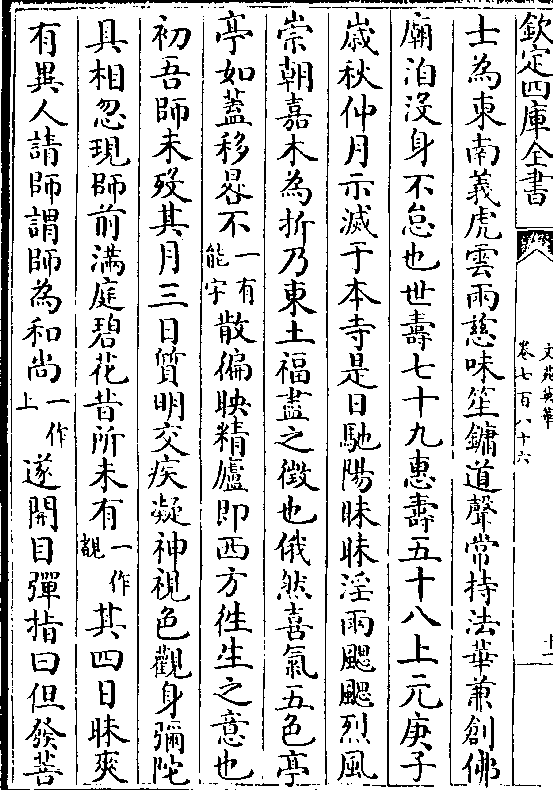 欽定四庫全書
文苑英華
卷七百八十六
上
士為東南義虎雲雨慈味笙鏞道聲常持法華兼創佛
廟洎没身不怠也世壽七十九惠壽五十八上元庚子
嵗秋仲月示滅于本寺是日馳陽昧昧淫雨颸颸烈風
崇朝嘉木為折乃東土福盡之徴也俄然喜氣五色亭
亭如蓋移晷不一有能字散徧映精廬即西方徃生之意也
初吾師未殁其月三日質明交疾凝神視色觀身彌陀
具相忽現師前滿庭碧花昔所未有一作覩其四日昧爽
有異人請師謂師為和尚一作上遂開目彈指曰但發菩